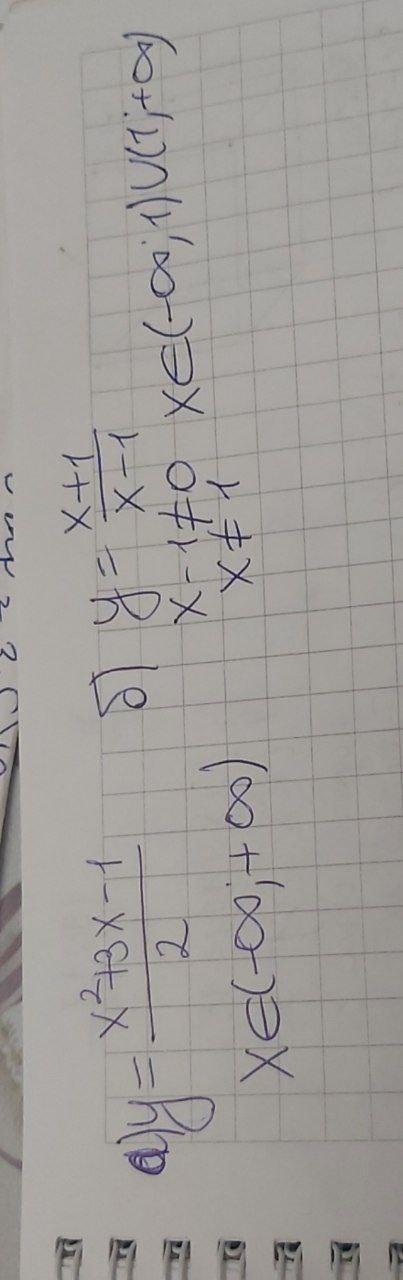 а) y = (x²+3x-1)/2
x∈(-∞;+∞)
б) y = (x+1)/(x-1)
x-1≠0 x∈(-∞;1)∪(1;+∞)
x≠1